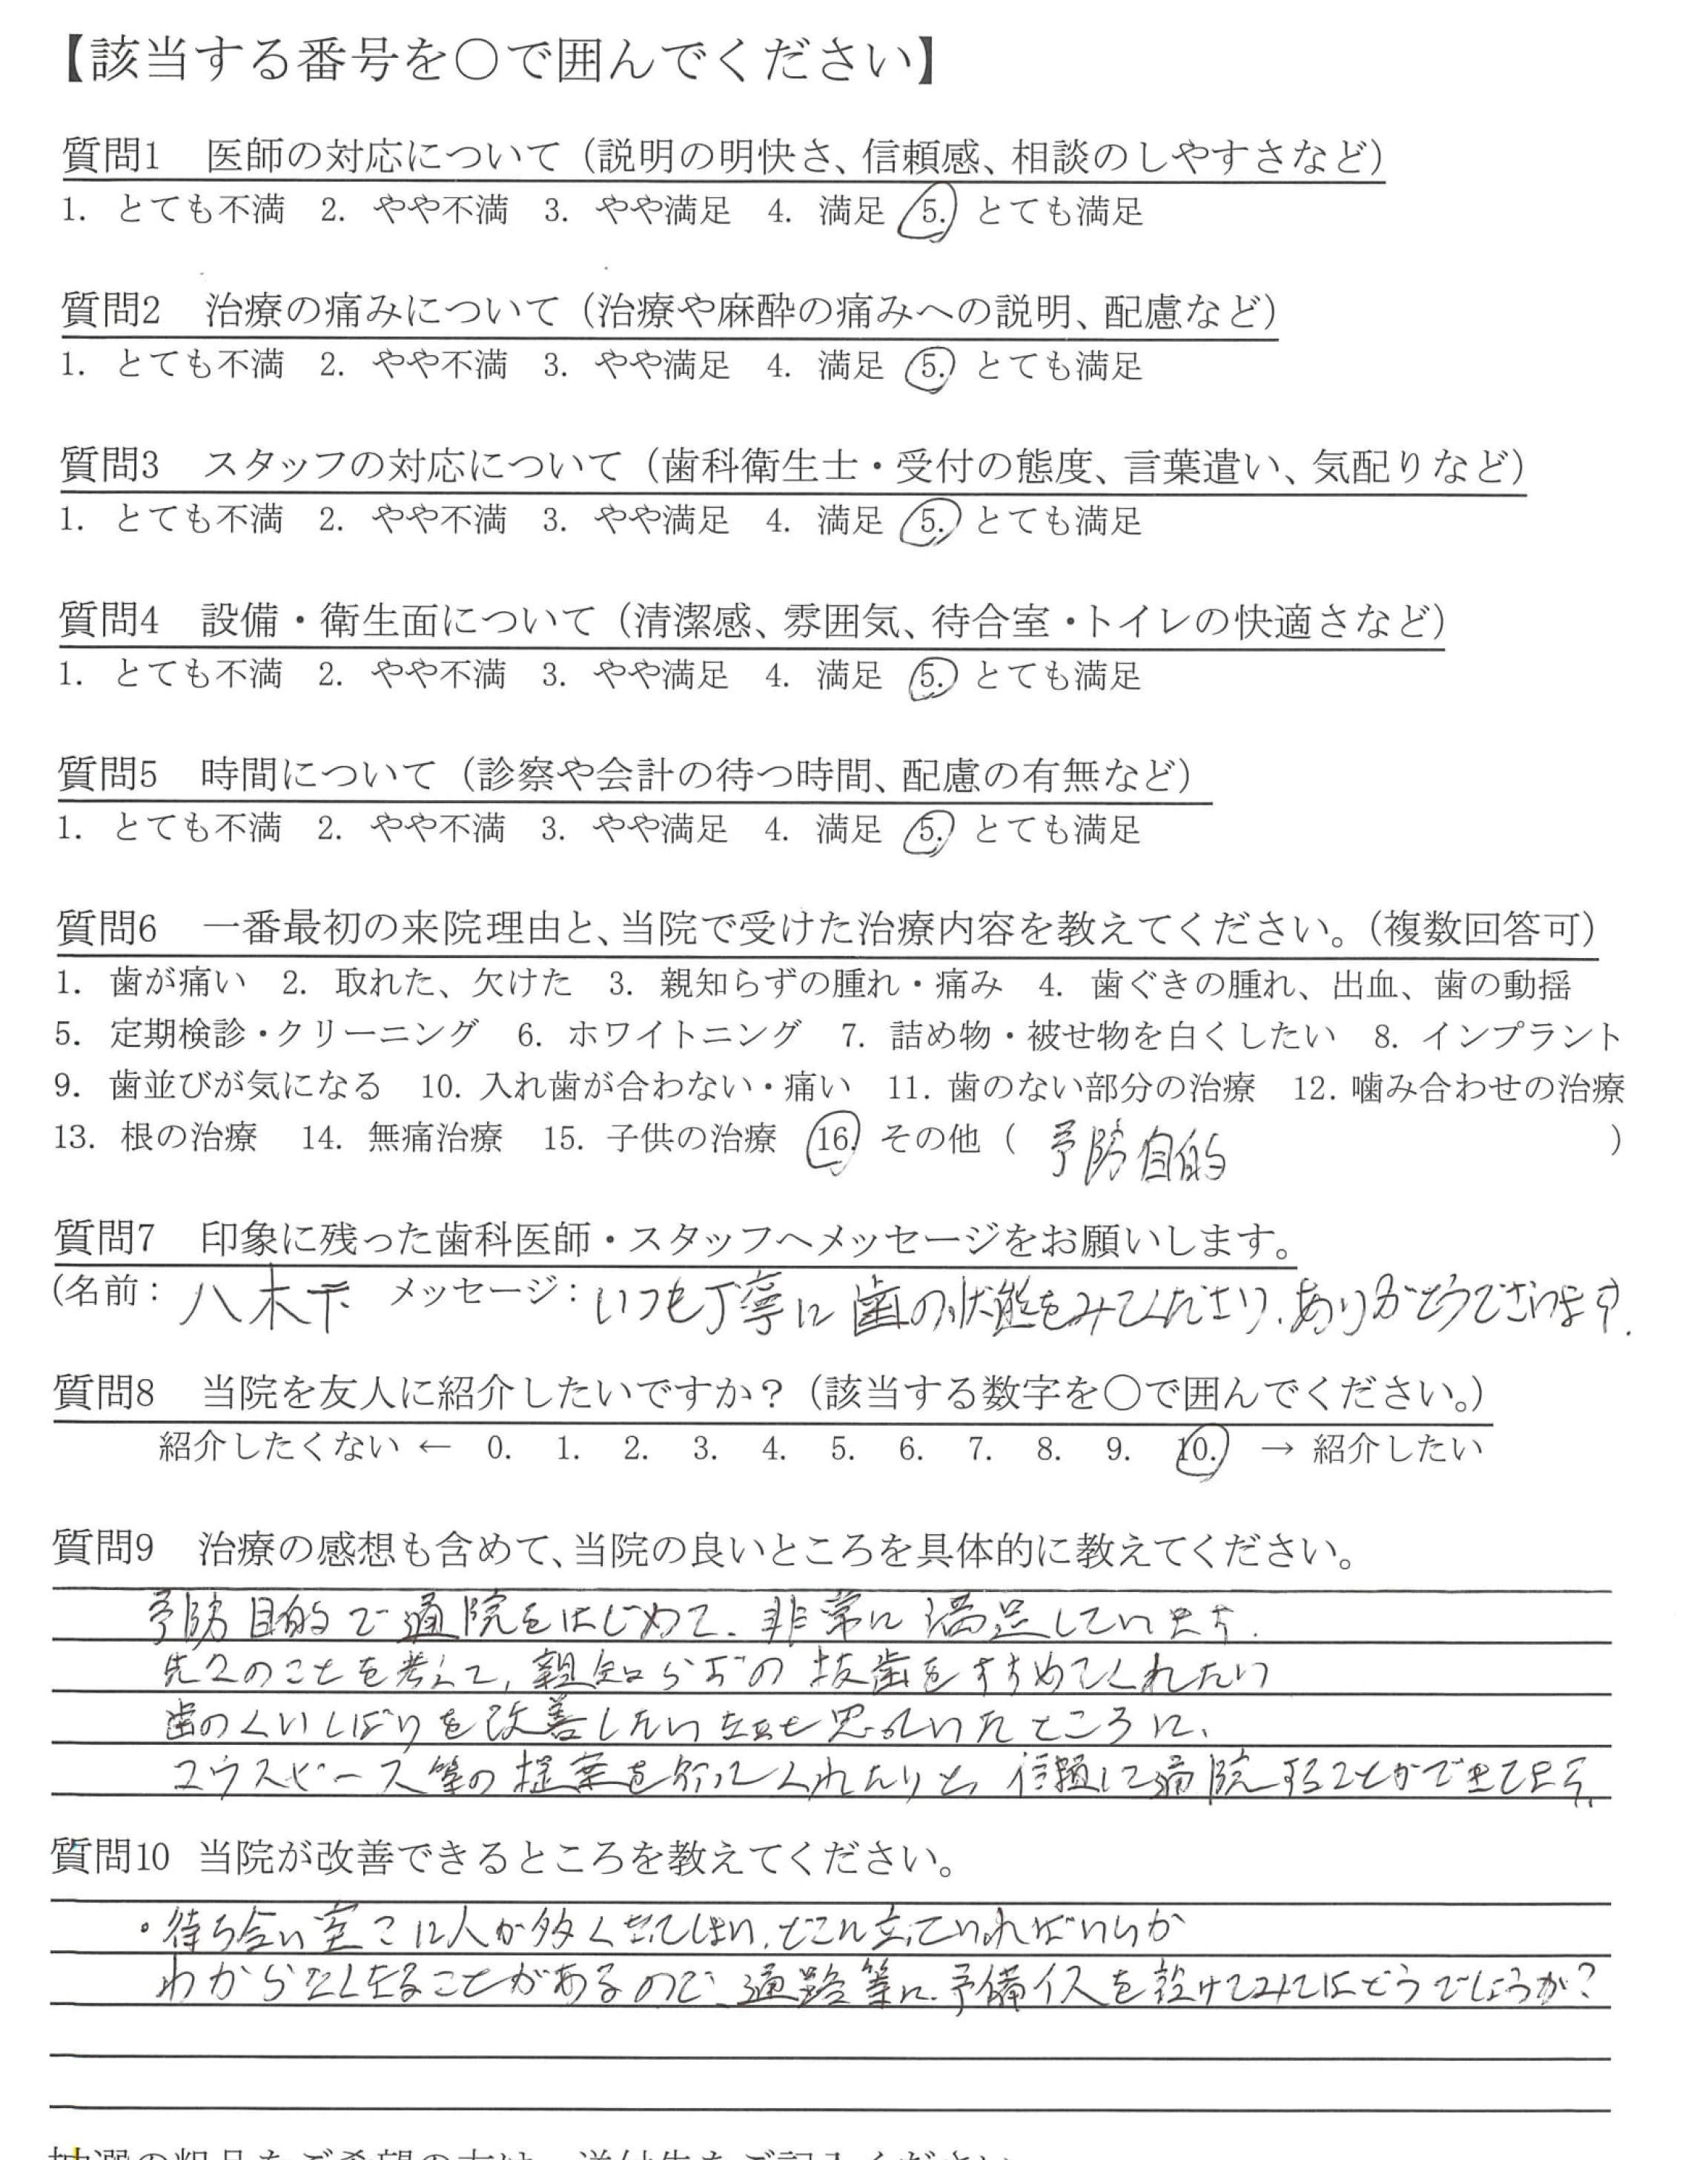 【該当する番号を○で囲んでください】
質問1　医師の対応について（説明の明快さ、信頼感、相談のしやすさなど）
1. とても不満　2. やや不満　3. やや満足　4. 満足　5. とても満足
質問2　治療の痛みについて（治療や麻酔の痛みへの説明、配慮など）
1. とても不満　2. やや不満　3. やや満足　4. 満足　5. とても満足
質問3　スタッフの対応について（歯科衛生士・受付の態度、言葉遣い、気配りなど）
1. とても不満　2. やや不満　3. やや満足　4. 満足　5. とても満足
質問4　設備・衛生面について（清潔感、雰囲気、待合室・トイレの快適さなど）
1. とても不満　2. やや不満　3. やや満足　4. 満足　5. とても満足
質問5　時間について（診察や会計の待つ時間、配慮の有無など）
1. とても不満　2. やや不満　3. やや満足　4. 満足　5. とても満足
質問6　一番最初の来院理由と、当院で受けた治療内容を教えてください。（複数回答可）
1. 歯が痛い　2. 取れた、欠けた　3. 親知らずの腫れ・痛み　4. 歯ぐきの腫れ、出血、歯の動揺
5. 定期検診・クリーニング　6. ホワイトニング　7. 詰め物・被せ物を白くしたい　8. インプラント
9. 歯並びが気になる　10. 入れ歯が合わない・痛い　11. 歯のない部分の治療　12. 噛み合わせの治療
13. 根の治療　14. 無痛治療　15. 子供の治療　16. その他（ 予防目的 ）
質問7　印象に残った歯科医師・スタッフへメッセージをお願いします。
(名前： 八木下　メッセージ：いつも丁寧に歯の状態をみてくださり、ありがとうございます。
質問8　当院を友人に紹介したいですか？（該当する数字を○で囲んでください。）
紹介したくない ← 0. 1. 2. 3. 4. 5. 6. 7. 8. 9. 10. → 紹介したい
質問9　治療の感想も含めて、当院の良いところを具体的に教えてください。
予防目的で通院をはじめて、非常に満足しています。
先々のことを考えて、親知らずの抜歯をすすめてくれたい
歯のくいしばりを改善したいなとも思っていたところに、
マウスピース等の提案を行ってくれたりと、信頼して通院することができてます。
質問10　当院が改善できるところを教えてください。
・待ち合い室に人が多く出てしまい、どこに立っていればいいか
わからなくなることがあるので、通路等に予備イスを設けてみてはどうでしょうか？
抽選の粗品をご希望の方は、送付先をご記入ください